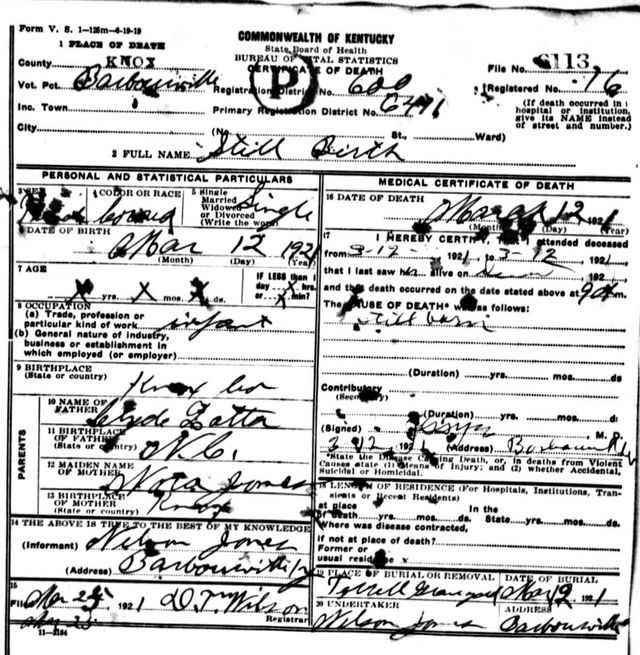 Form V. S. 1—125m—6-19-19
COMMONWEALTH OF KENTUCKY
State Board of Health
BUREAU OF VITAL STATISTICS
CERTIFICATE OF DEATH
1 PLACE OF DEATH
County KNOX
Vot. Pct. Barbourville
Inc. Town
City
(No. St., Ward)
Registration District No. 600
Primary Registration District No. 6411
P
File No. 6113
Registered No. 16
(If death occurred in
hospital or institution,
give its NAME instead
of street and number.)
2 FULL NAME Still Birth
PERSONAL AND STATISTICAL PARTICULARS
3 SEX
4 COLOR OR RACE
Colored
5 Single
Married
Widowed
or Divorced
(Write the word)
Single
6 DATE OF BIRTH
Mar 12 1921
(Month) (Day) (Year)
7 AGE
X yrs. X mos. X ds.
IF LESS than 1
day X hrs.
or X min?
8 OCCUPATION
(a) Trade, profession or
particular kind of work infant
(b) General nature of industry,
business or establishment in
which employed (or employer)
9 BIRTHPLACE
(State or country)
Knox Co
PARENTS
10 NAME OF
FATHER
Clyde
11 BIRTHPLACE
OF FATHER
(State or country)
N.C.
12 MAIDEN NAME
OF MOTHER
Nora Jones
13 BIRTHPLACE
OF MOTHER
(State or country)
Knox
14 THE ABOVE IS TRUE TO THE BEST OF MY KNOWLEDGE
(Informant) Nelson Jones
(Address) Barbourville Ky
15
Filed Mar 25 1921 D. T. Wilson
Registrar
11—3184
MEDICAL CERTIFICATE OF DEATH
16 DATE OF DEATH
March 12 1921
(Month) (Day) (Year)
17
I HEREBY CERTIFY, That I attended deceased
from 3-12- 1921 to 3-12 1921
that I last saw h alive on 192
and that death occurred on the date stated above at 9 am.
The CAUSE OF DEATH* was as follows:
Still born
(Duration) yrs. mos. ds.
Contributory
(Secondary)
(Duration) yrs. mos. ds.
(Signed) M. D.
3 12 1921 (Address) Barbourville
*State the Disease Causing Death, or, in deaths from Violent
Causes state (1) Means of Injury; and (2) whether Accidental,
Suicidal or Homicidal.
18 LENGTH OF RESIDENCE (For Hospitals, Institutions, Transients or Recent Residents)
at place In the
of death yrs. mos. ds. State yrs. mos. ds.
Where was disease contracted,
if not at place of death?
Former or
usual residence
19 PLACE OF BURIAL OR REMOVAL
DATE OF BURIAL
Mar 12 1921
20 UNDERTAKER
Nelson Jones
ADDRESS
Barbourville